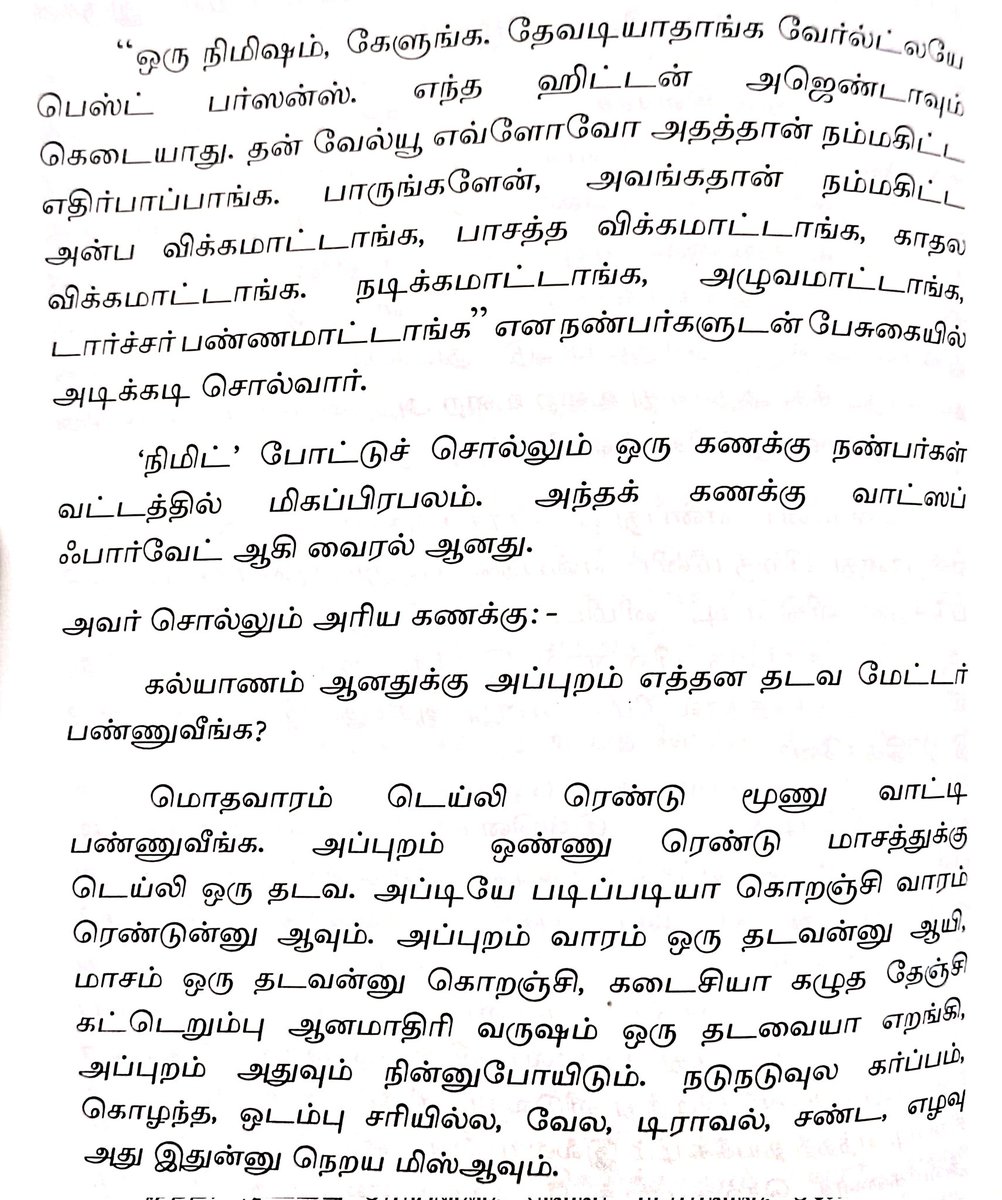 “ஒரு நிமிஷம், கேளுங்க. தேவடியாதாங்க வேர்ல்ட்லயே
பெஸ்ட் பர்ஸன்ஸ். எந்த ஹிட்டன் அஜெண்டாவும்
கெடையாது. தன் வேல்யூ எவ்ளோவோ அதத்தான் நம்மகிட்ட
எதிர்பாப்பாங்க. பாருங்களேன், அவங்கதான் நம்மகிட்ட
அன்ப விக்கமாட்டாங்க, பாசத்த விக்கமாட்டாங்க, காதல
விக்கமாட்டாங்க. நடிக்கமாட்டாங்க, அழுவமாட்டாங்க,
டார்ச்சர் பண்ணமாட்டாங்க” என நண்பர்களுடன் பேசுகையில்
அடிக்கடி சொல்வார்.
‘நிமிட்’ போட்டுச் சொல்லும் ஒரு கணக்கு நண்பர்கள்
வட்டத்தில் மிகப்பிரபலம். அந்தக் கணக்கு வாட்ஸப்
ஃபார்வேட் ஆகி வைரல் ஆனது.
அவர் சொல்லும் அரிய கணக்கு: -
கல்யாணம் ஆனதுக்கு அப்புறம் எத்தன தடவ மேட்டர்
பண்ணுவீங்க?
மொதவாரம் டெய்லி ரெண்டு மூணு வாட்டி
பண்ணுவீங்க. அப்புறம் ஒண்ணு ரெண்டு மாசத்துக்கு
டெய்லி ஒரு தடவ. அப்டியே படிப்படியா கொறஞ்சி வாரம்
ரெண்டுன்னு ஆவும். அப்புறம் வாரம் ஒரு தடவன்னு ஆயி,
மாசம் ஒரு தடவன்னு கொறஞ்சி, கடைசியா கழுத தேஞ்சி
கட்டெறும்பு ஆனமாதிரி வருஷம் ஒரு தடவையா எறங்கி,
அப்புறம் அதுவும் நின்னுபோயிடும். நடுநடுவுல கர்ப்பம்,
கொழந்த, ஒடம்பு சரியில்ல, வேல, டிராவல், சண்ட, எழவு
அது இதுன்னு நெறய மிஸ்ஆவும்.